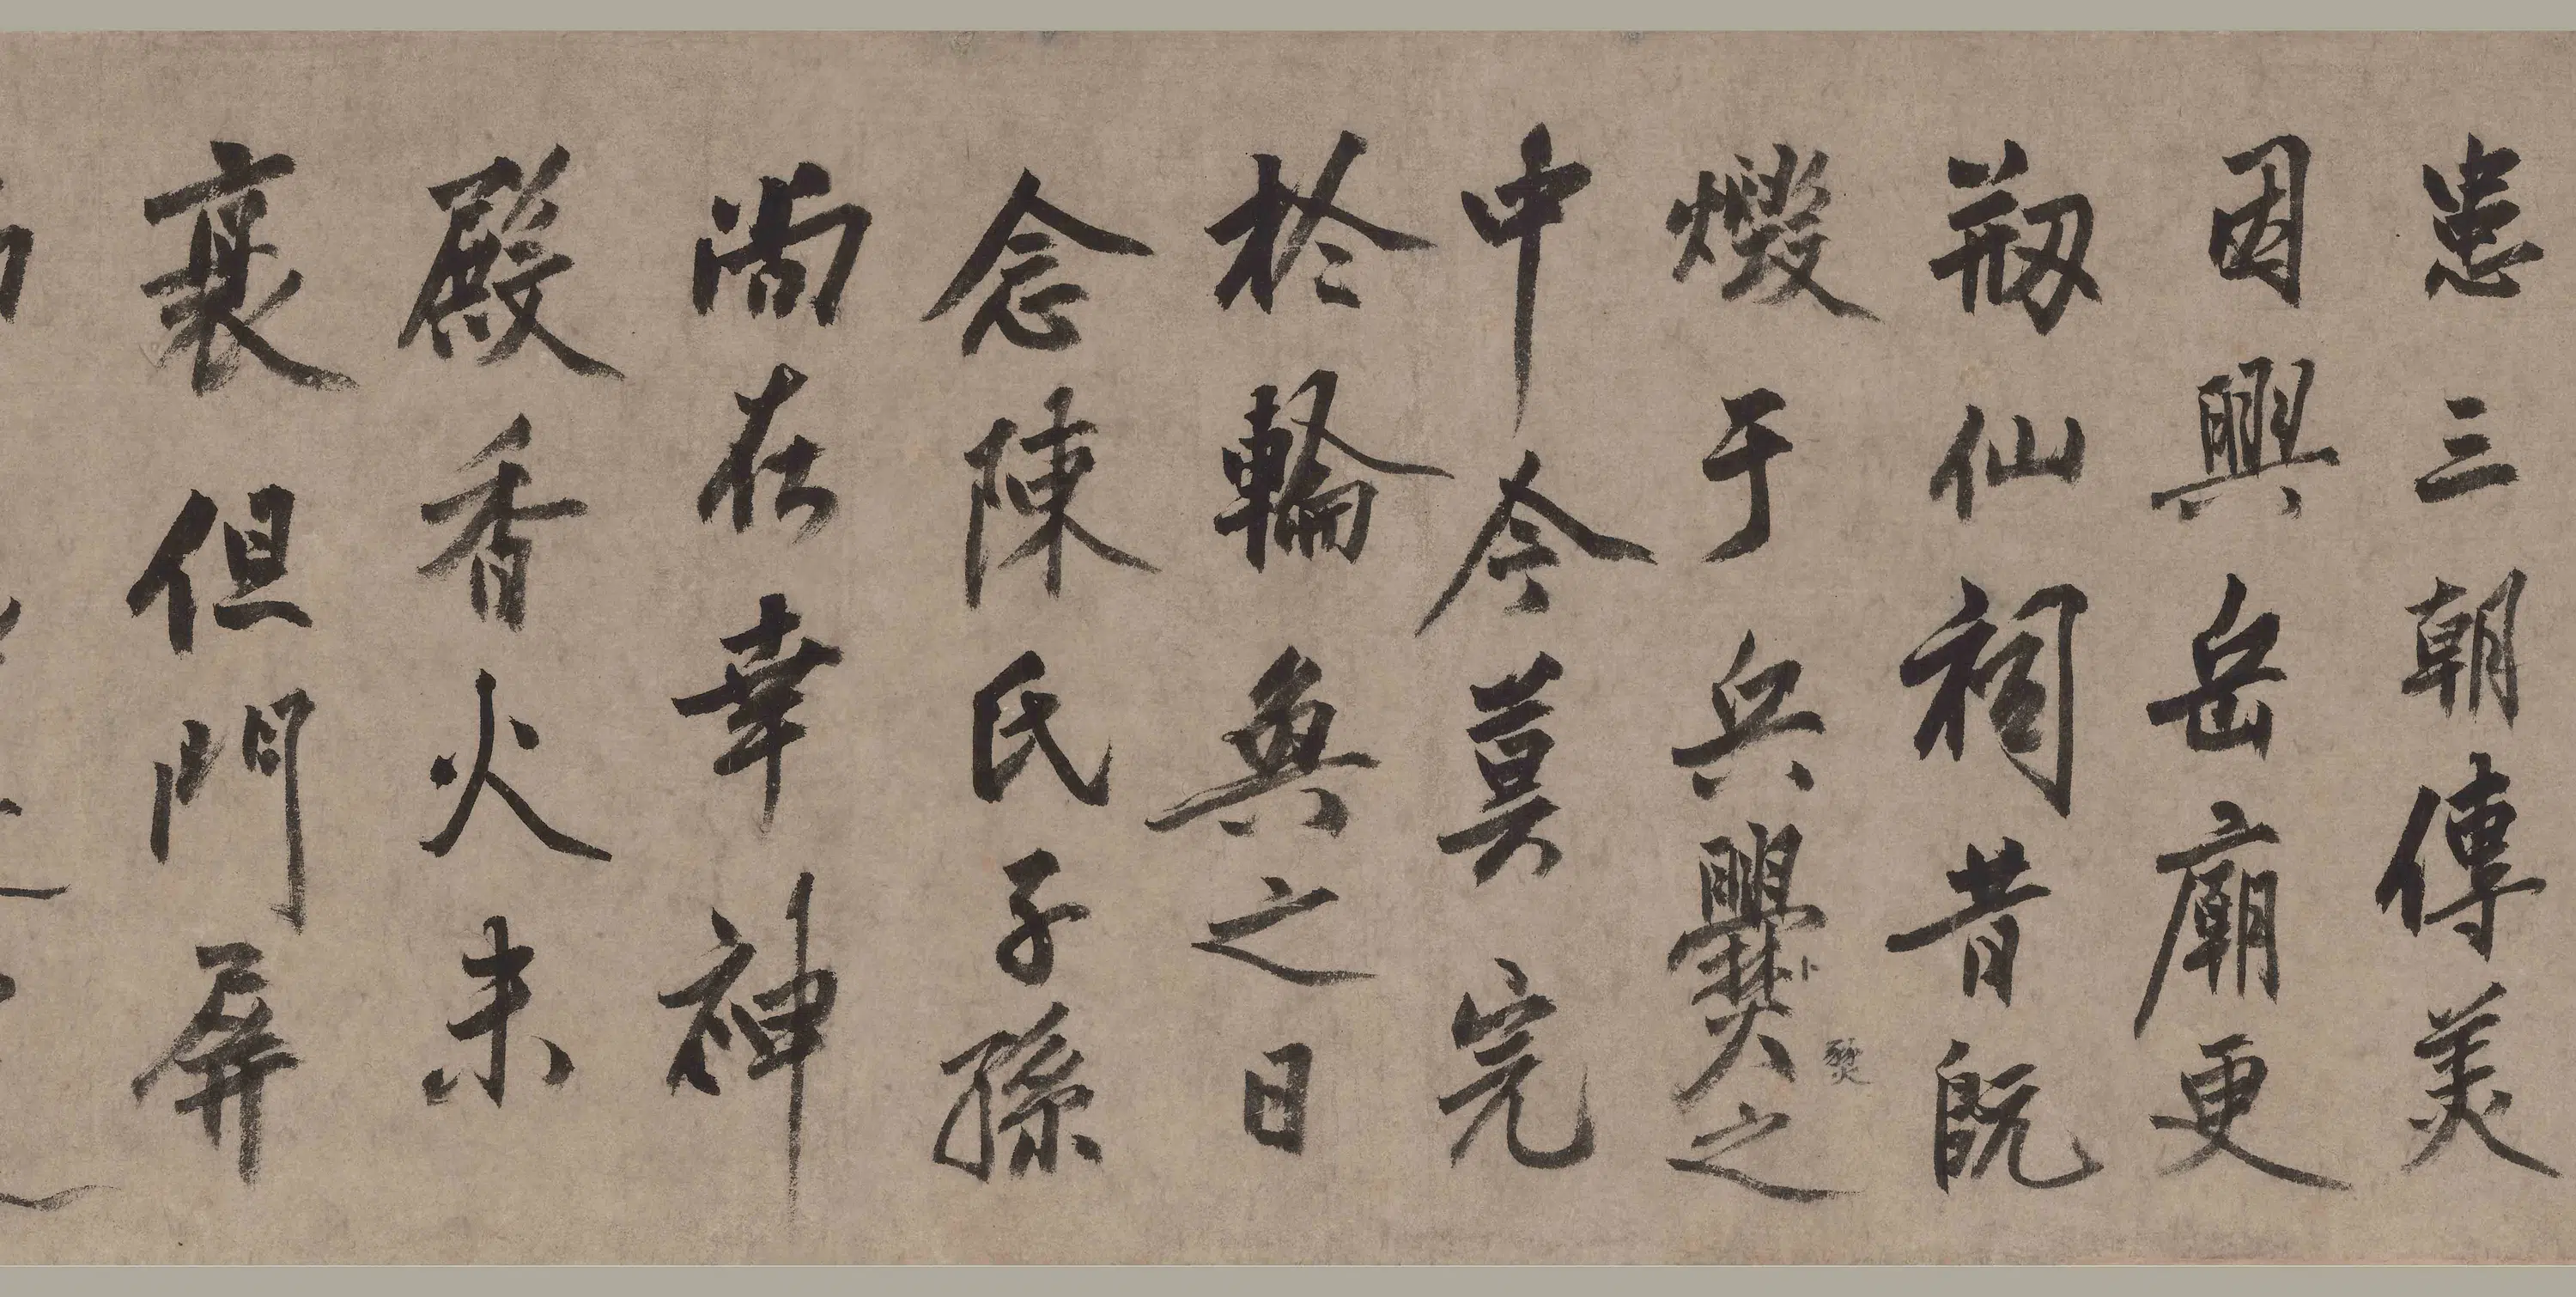 患三朝傳美
因興岳廟更
剏仙祠昔既
燬于兵爨之
燹
中今莫完
於輪奐之日
念陳氏子孫
尚在幸神
殿香火未
衰但門屏